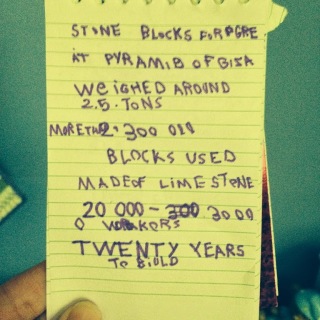 STONE BLOCKS FOR
AT PYRAMID OF GISA
WEIGHED AROUND
2.5.TONS
MORETHA 2.300 000
BLOCKS USED
MADEOF LIMESTONE
20 000 - 300 30 00
0 WORKORS
TWENTY YEARS
TO BIULD